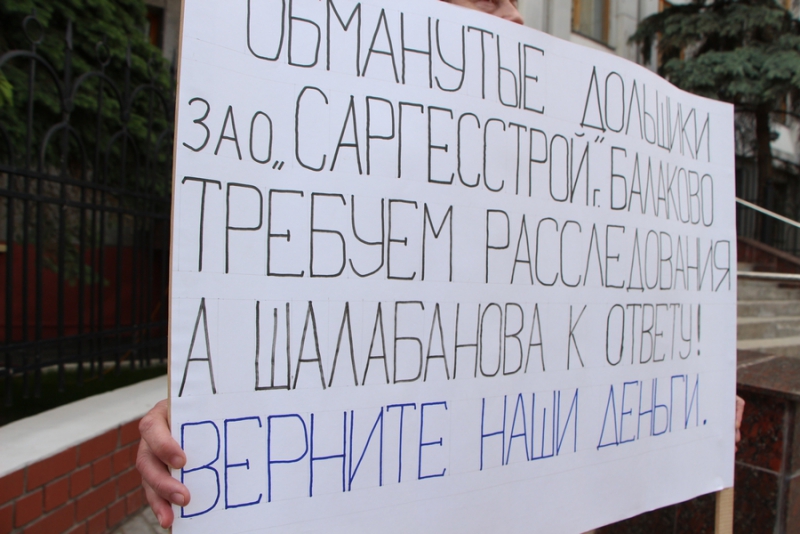 ОБМАНУТЫЕ ДОЛЬЩИКИ
ЗАО „САРГЕССТРОЙ" г. БАЛАКОВО
ТРЕБУЕМ РАССЛЕДОВАНИЯ
А ШАЛАБАНОВА К ОТВЕТУ!
ВЕРНИТЕ НАШИ ДЕНЬГИ.